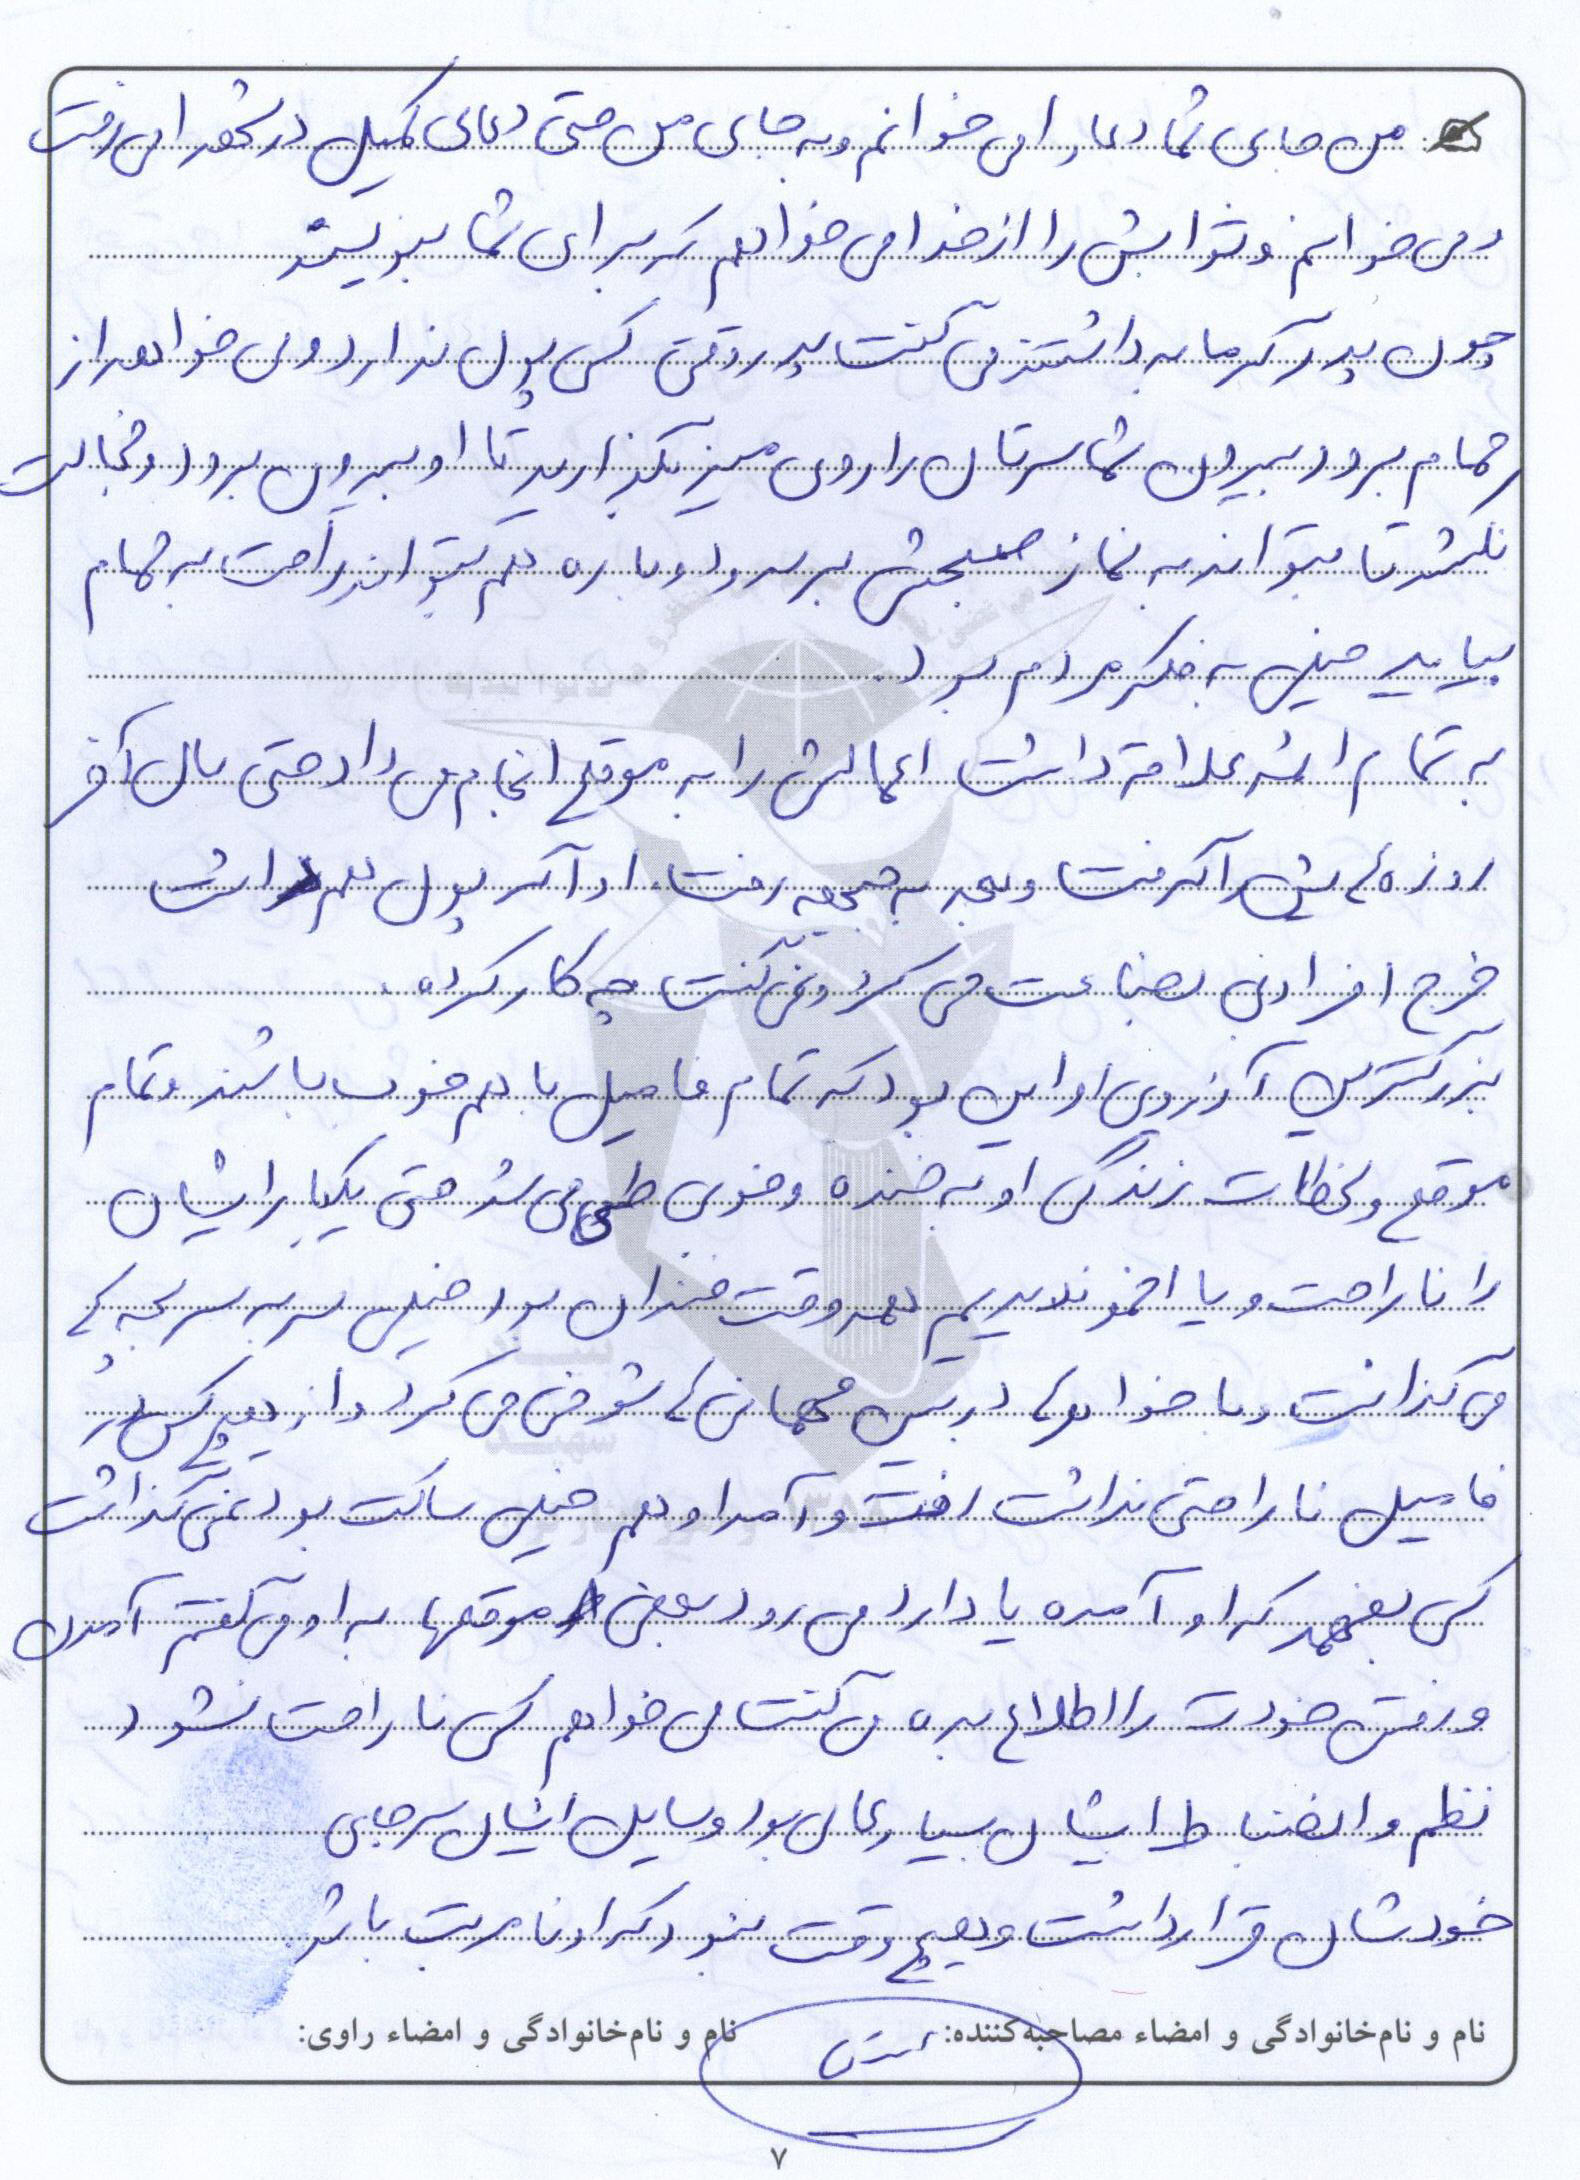 من جای شما دعا را می خوانم و به جای من حتی دعای کمیل در شهر را می رفت
و می خوانم و ثوابش را از خدا می خواهم که برای شما بنویسند
چون پدر گرمابه داشتند می گفت پدر وقتی کسی پول ندارد و می خواهد از
حمام برود بیرون شما سرتان را روی میز بگذارید تا او بیرون برود و خجالت
نکشد تا بتواند به نماز صبحش برسد و دوباره هم بتواند راحت به حمام
بیاید خیلی به فکر مردم بود.
به تمام ائمه علاقه داشت اعمالش را به موقع انجام می داد حتی سال آخر
روزه هایش را گرفت و بعد به جبهه رفت. او اگر پول هم داشت
خرج افراد بی بضاعت می کرد و نمی گفت چه کار کرده.
بزرگترین آرزوی او این بود که تمام فامیل با هم خوب باشند و تمام
موقع و لحظات زندگی او به خنده و خوبی طی می شد حتی یکبار ایشان
را ناراحت و یا اخمو ندیدیم همه وقت خندان بود خیلی سر به سر بچه ها
می گذاشت و با خواهرها در بین مهمانی ها شوخی می کرد و از هیچ کس در
فامیل ناراحتی نداشت رفت و آمد او هم خیلی ساکت بود نمی گذاشت
کسی بفهمد که او آمده یا دارد می رود بعضی موقعها به او می گفتم آمدن
و رفتن خودت را اطلاع بده می گفت می خواهم کسی ناراحت نشود
نظم و انضباط ایشان بسیار عالی بود وسایل ایشان سر جای
خودشان قرار داشت و هیچ وقت نبود که او نامرتب باشد.
نام و نام‌خانوادگی و امضاء مصاحبه‌کننده: نام و نام‌خانوادگی و امضاء راوی:
۷